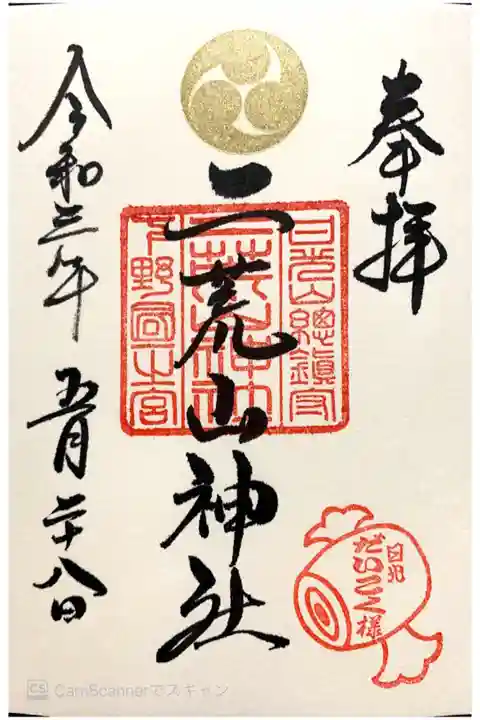 奉拝
二荒山神社
日光山總鎮守
二荒山神社
下野國一宮
令和三年 五月二十八日
日光
だいこく様
CS CamScannerでスキャン